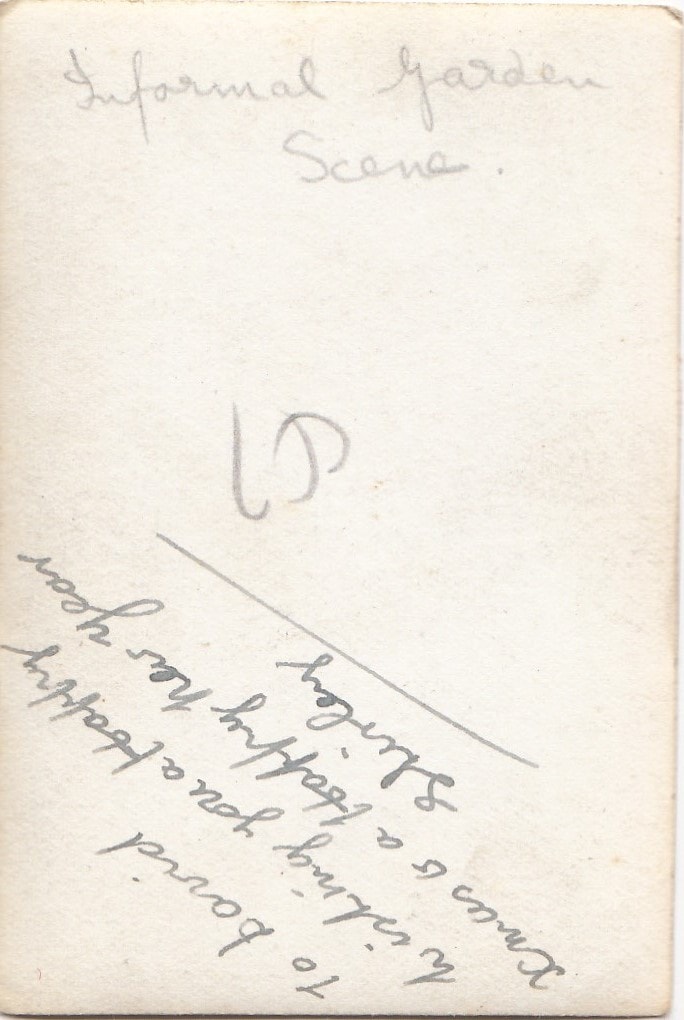 Informal Garden
Scene.
To David
Wishing you a Happy
Xmas & a Happy new year
Shirley